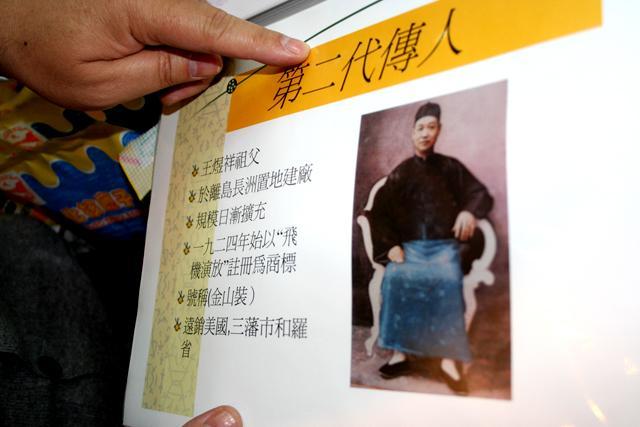 第二代傳人
王煜祥祖父
於離島長洲置地建廠
規模日漸擴充
一九二四年始以“飛
機演放”註冊為商標
號稱(金山裝)
遠銷美國,三藩市和羅
省